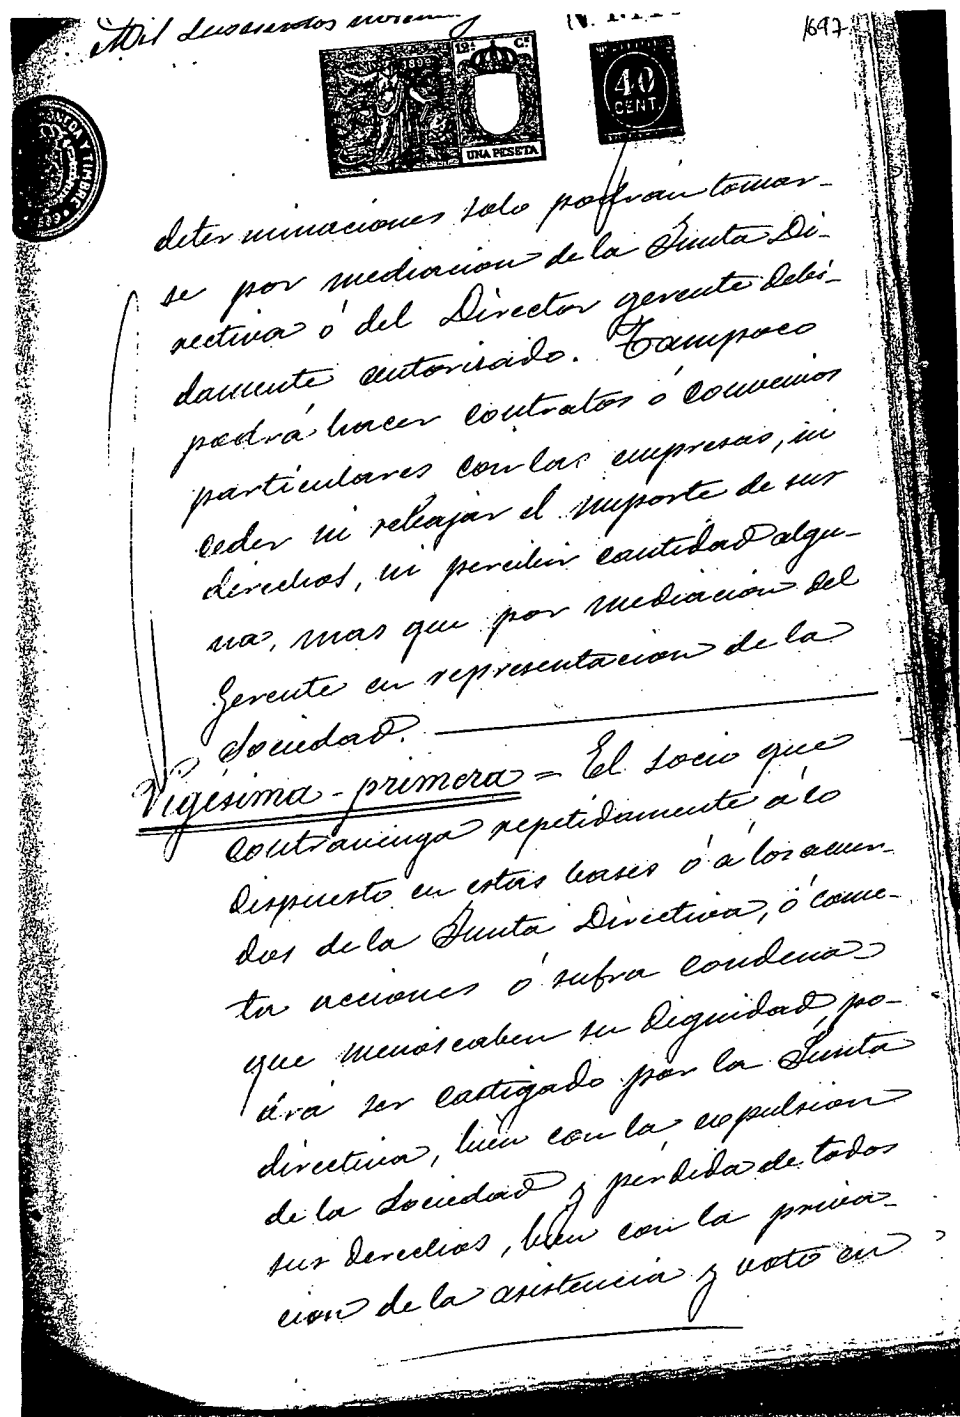 Mil doscientos noventa y
1697
1899
12ª Cª
UNA PESETA
40
CENT.
determinaciones solo podrán tomar-
se por mediacion de la Junta Di-
rectiva ó del Director gerente debi-
damente autorizado. Tampoco
podrá hacer contratos ó convenios
particulares con las empresas, ni
ceder ni rebajar el importe de sus
derechos, ni percibir cantidad algu-
na, mas que por mediación del
Gerente en representacion de la
Sociedad.
Vigésima-primera = El socio que
contravenga repetidamente á lo
dispuesto en estas bases ó á los acuer-
dos de la Junta Directiva, ó come-
ta acciones ó sufra condena
que menoscaben su dignidad, po-
drá ser castigado por la Junta
directiva, bien con la expulsion
de la Sociedad y pérdida de todos
sus derechos, bien con la priva-
cion de la asistencia y voto en